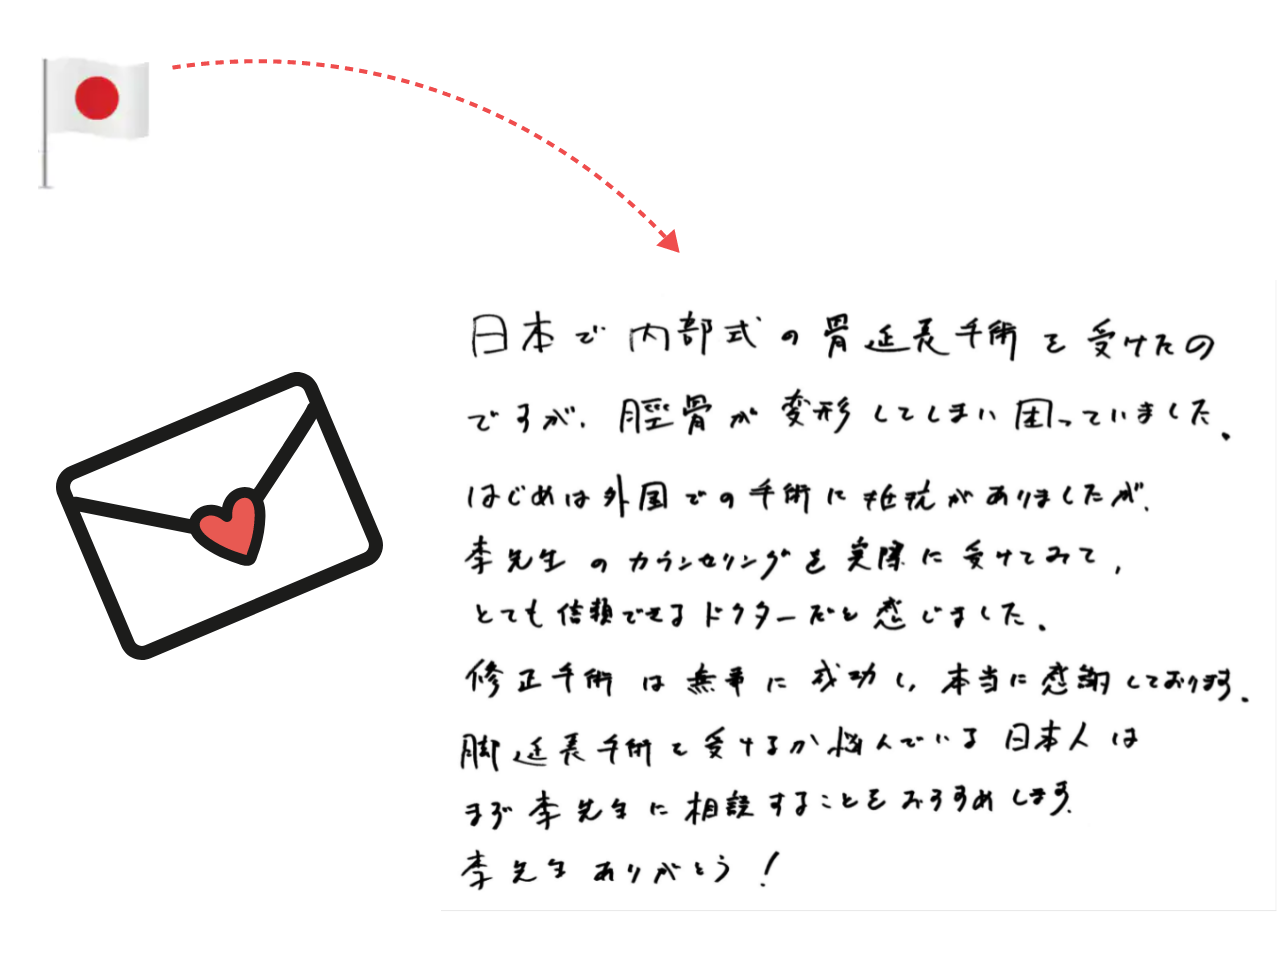 日本で内部式の骨延長手術を受けたの
ですが、脛骨が変形してしまい困っていました。
はじめは外国での手術に抵抗がありましたが、
李先生のカウンセリングを実際に受けてみて、
とても信頼できるドクターだと感じました。
修正手術は無事に成功し、本当に感謝しております。
脚延長手術を受けるか悩んでいる日本人は
まず李先生に相談することをおすすめします。
李先生ありがとう!